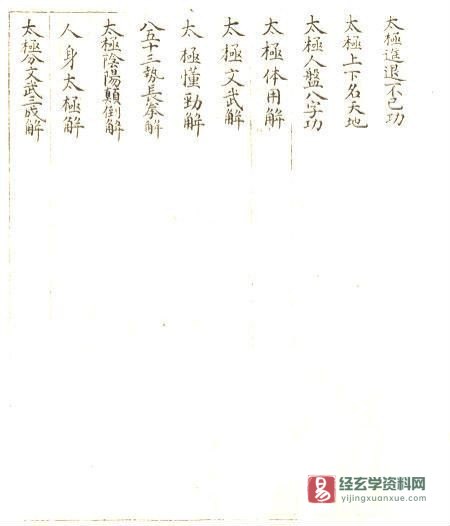 太極進退不已功
太極上下名天地
太極人盤八字功
太極体用解
太極文武解
太極懂勁解
八五十三勢長拳解
太極陰陽顛倒解
人身太極解
太極分文武三成解
易
经玄学资料网
yijingxuanxue.com